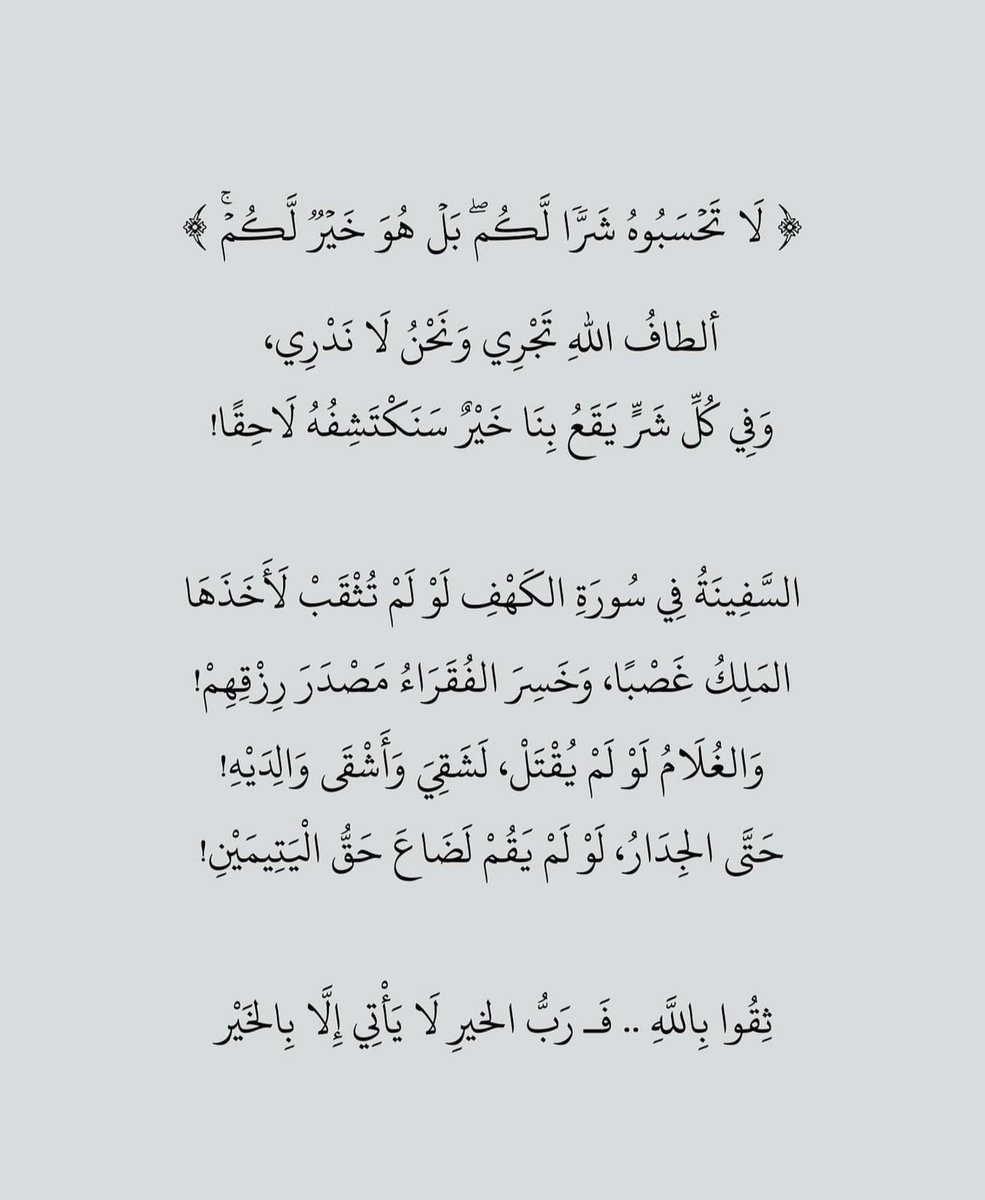 ﴿ لَا تَحْسَبُوهُ شَرًّا لَّكُم ۖ بَلْ هُوَ خَيْرٌ لَّكُمْ ۚ ﴾
ألطافُ اللهِ تَجْرِي وَنَحْنُ لَا نَدْرِي،
وَفِي كُلِّ شَرٍّ يَقَعُ بِنَا خَيْرٌ سَنَكْتَشِفُهُ لَاحِقًا!
السَّفِينَةُ فِي سُورَةِ الكَهْفِ لَوْ لَمْ تُثْقَبْ لَأَخَذَهَا
المَلِكُ غَصْبًا، وَخَسِرَ الفُقَرَاءُ مَصْدَرَ رِزْقِهِمْ!
وَالغُلَامُ لَوْ لَمْ يُقْتَلْ، لَشَقِيَ وَأَشْقَى وَالِدَيْهِ!
حَتَّى الجِدَارُ، لَوْ لَمْ يَقُمْ لَضَاعَ حَقُّ الْيَتِيمَيْنِ!
ثِقُوا بِاللَّهِ .. فَـ رَبُّ الخيرِ لَا يَأْتِي إِلَّا بِالخَيْر